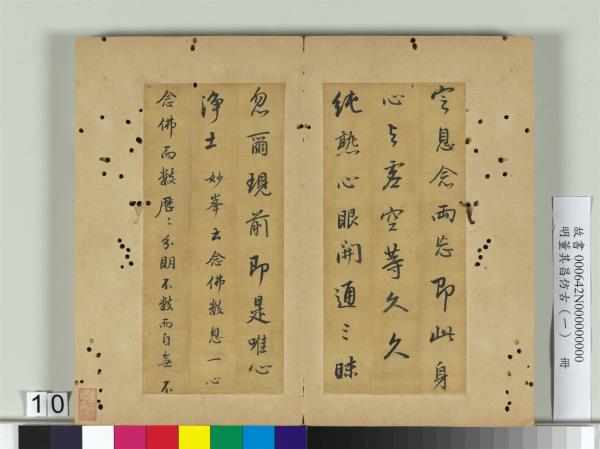 定息念兩忘即此身
心與虛空等久久
純熟心眼開通三昧
忽爾現前即是唯心
淨土 妙峯云念佛數息一心
念佛而數歷〻分明不數而自無不
故書 000642N000000000
明董其昌仿古(一) 冊
10